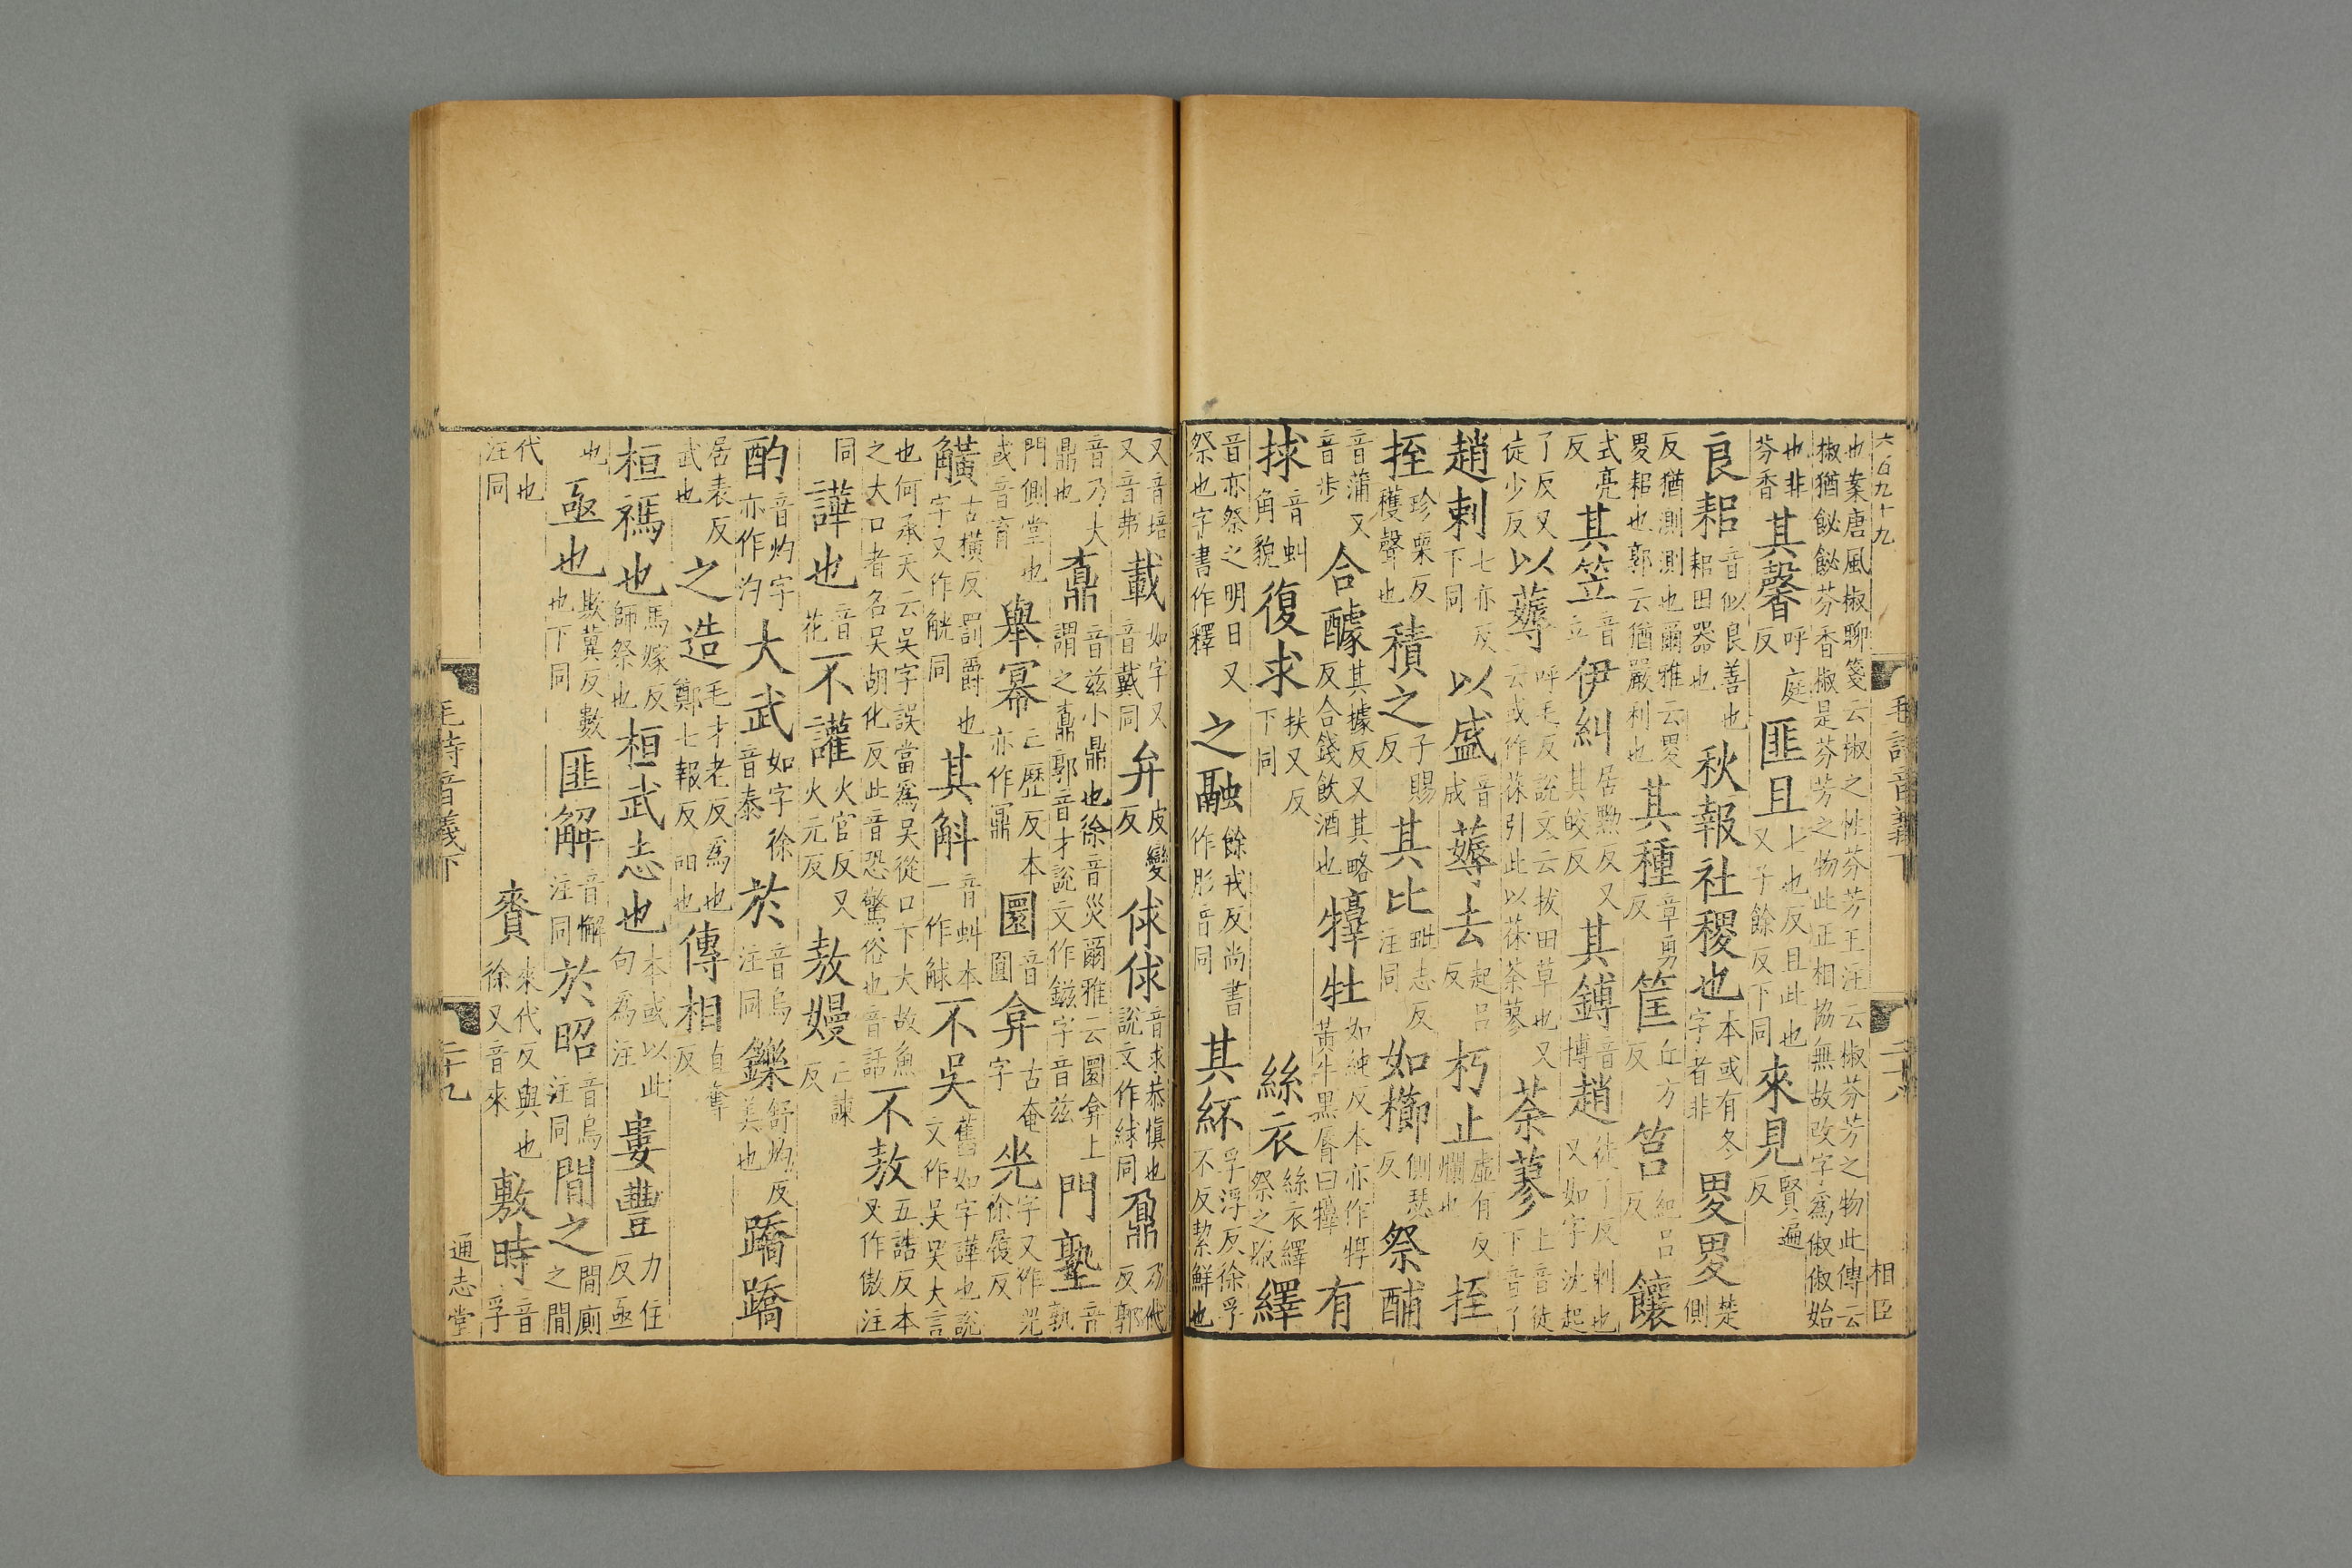 六百九十九　毛詩音義下　二十八　相臣
也案唐風椒聊箋云椒之性芬芳王注云椒芬芳之物此傳云
椒猶飶飶芬香椒是芬芳之物此正相協無故改字為俶俶始
也非芬香其馨呼庭反匪且七也反且此也又子餘反下同來見賢遍反
良耜音似良善也耜田器也秋報社稷也本或有冬字者非畟畟楚側
反猶測測也爾雅云畟畟耜也郭云猶嚴利也其種章勇反筐丘方反筥紀呂反饟
式亮反其笠音立伊糾居黝反又其皎反其鎛音博趙徒了反刺也又如字沈起
了反又徒少反以薅呼毛反說文云拔田草也又云或作茠引此以茠荼蓼荼蓼上音徒下音了
趙刺七亦反下同以盛音成薅去起呂反朽止虛有反爛也挃
挃珍栗反穫聲也積之子賜反其比毗志反注同如櫛側瑟反祭酺
音蒲又音步合醵其據反又其略反合錢飲酒也犉牡如純反本亦作犉黃牛黑脣曰犉有
捄音虯角貌復求扶又反下同絲衣絲衣繹祭之服繹
音亦祭之明日又祭也字書作釋之融餘戎反尚書作肜音同其紑孚浮反徐孚不反絜鮮也
又音培又音弗載如字又音戴同弁皮變反俅俅音求恭慎也說文作絿同鼐乃代反郭
音乃大鼎也鼒音茲小鼎也徐音災爾雅云圜弇上謂之鼒郭音才說文作鎡字音茲門塾音孰
門側堂也或音育舉冪亡歷反本亦作鼏圜音圓弇古奄字兕字又作兕徐履反
觵古橫反罰爵也字又作觥同其觓音虯本一作觩不吳舊如字譁也說文作吳吳大言
也何承天云吳字誤當爲吳從口下大故魚之大口者名吳胡化反此音恐驚俗也音話不敖五誥反本又作傲注
同譁也音花不讙火官反又火元反敖嫚亡諫反
酌音灼字亦作汋大武如字徐音泰於音烏注同鑠舒灼反美也蹻蹻
居表反武也之造毛才老反爲也鄭七報反詣也傳相反
桓禡也馬嫁反師祭也桓武志也本或以此句爲注婁豐力住反亟
也亟也欺冀反數也下同匪解音懈注同於昭音烏注同閒之閒廁之閒
代也注同賚來代反與也徐又音來敷時音孚
毛詩音義下　二十九　通志堂